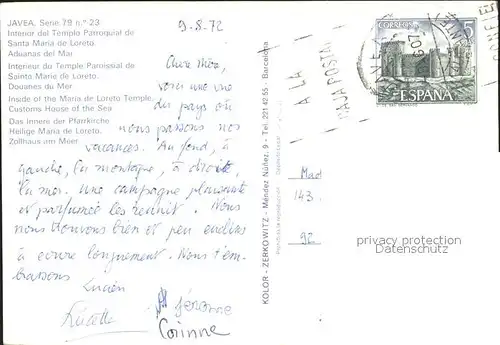 JAVEA. Serie 79 n.º 23
Interior del Templo Parroquial de
Santa Maria de Loreto.
Aduanas del Mar
Interieur du Temple Paroissial de
Sainte Maria de Loreto.
Douanes du Mer
Inside of the Maria de Loreto Temple.
Customs House of the Sea
Das Innere der Pfarrkirche
Heilige Maria de Loreto.
Zollhaus am Meer
9.8.72
Chère
voici une vue
du pays où
nous passons nos
vacances. Au fond, à
gauche, la montagne, à droite,
la mer. Une campagne plaisante
et parfumée les réunit. Nous
nous trouvons bien et peu enclins
à écrire longuement. Nous t'em-
brassons
Lucien
Lucette
Jérome
Corinne
KOLOR - ZERKOWITZ - Méndez Núñez, 9 - Tel. 221 42 55 - Barcelona
CORREOS
5
PTA
ESPAÑA
A LA
CAJA POSTAL
Mad
143.
92
privacy protection
Datenschutz